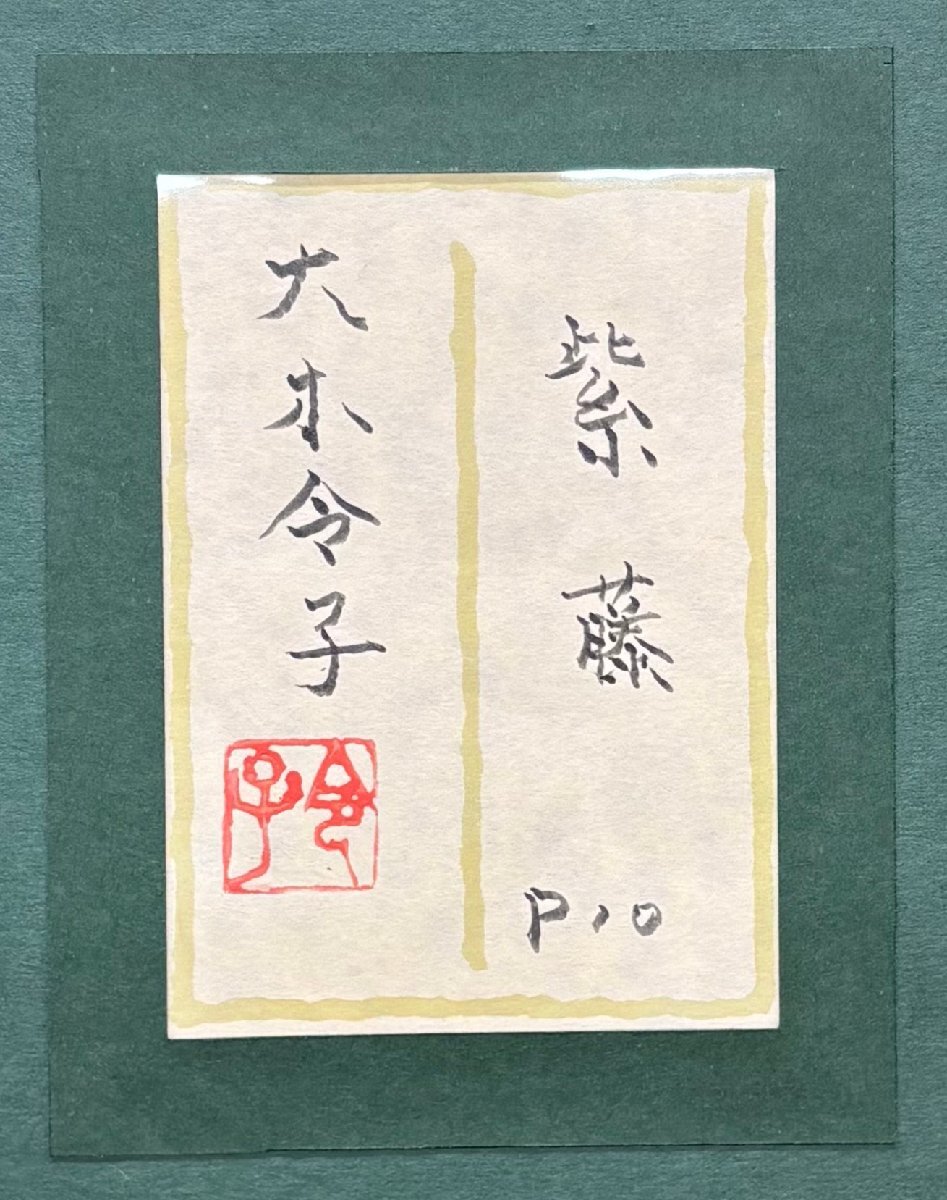 紫藤
P10
大木令子
令子